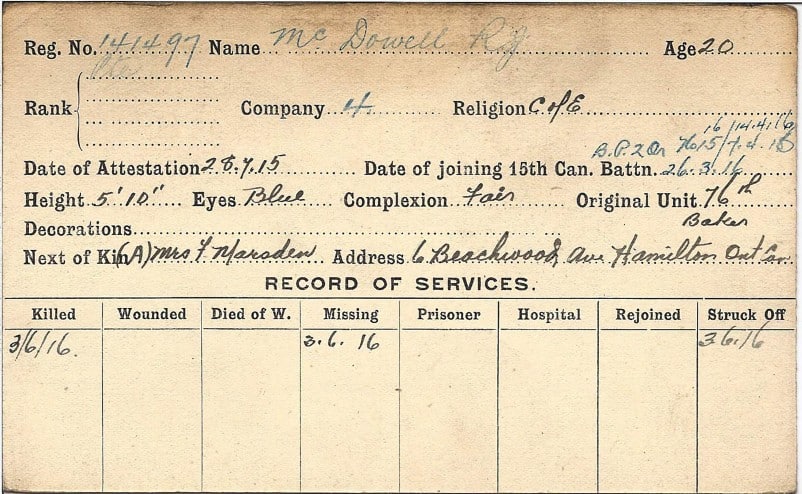 Reg. No. 141497 Name Mc Dowell R J Age 20
Pte
Rank Company 4. Religion C of E
16/14.4.16
B.P.2 Or 7615/7.4.16
Date of Attestation 28.7.15 Date of joining 15th Can. Battn. 26.3.16
Height 5'10" Eyes Blue Complexion Fair Original Unit 76th
Decorations Baker
Next of Kin (A) Mrs F Marsden Address 6 Beachwood Ave Hamilton Ont Can
RECORD OF SERVICES.
Killed Wounded Died of W. Missing Prisoner Hospital Rejoined Struck Off
3/6/16. 3.6.16 3.6.16